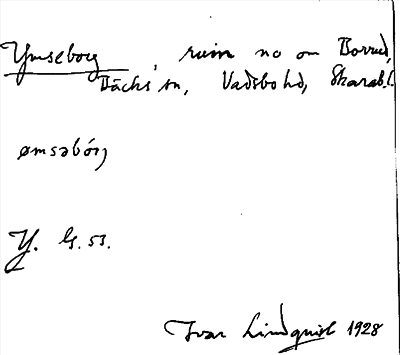 Ymseborg, ruin no om Borrud,
Bäcks sn, Vadsbo hd, Skarab. l.
ømsəbórj
Y. G. 53.
Ivar Lindquist 1928